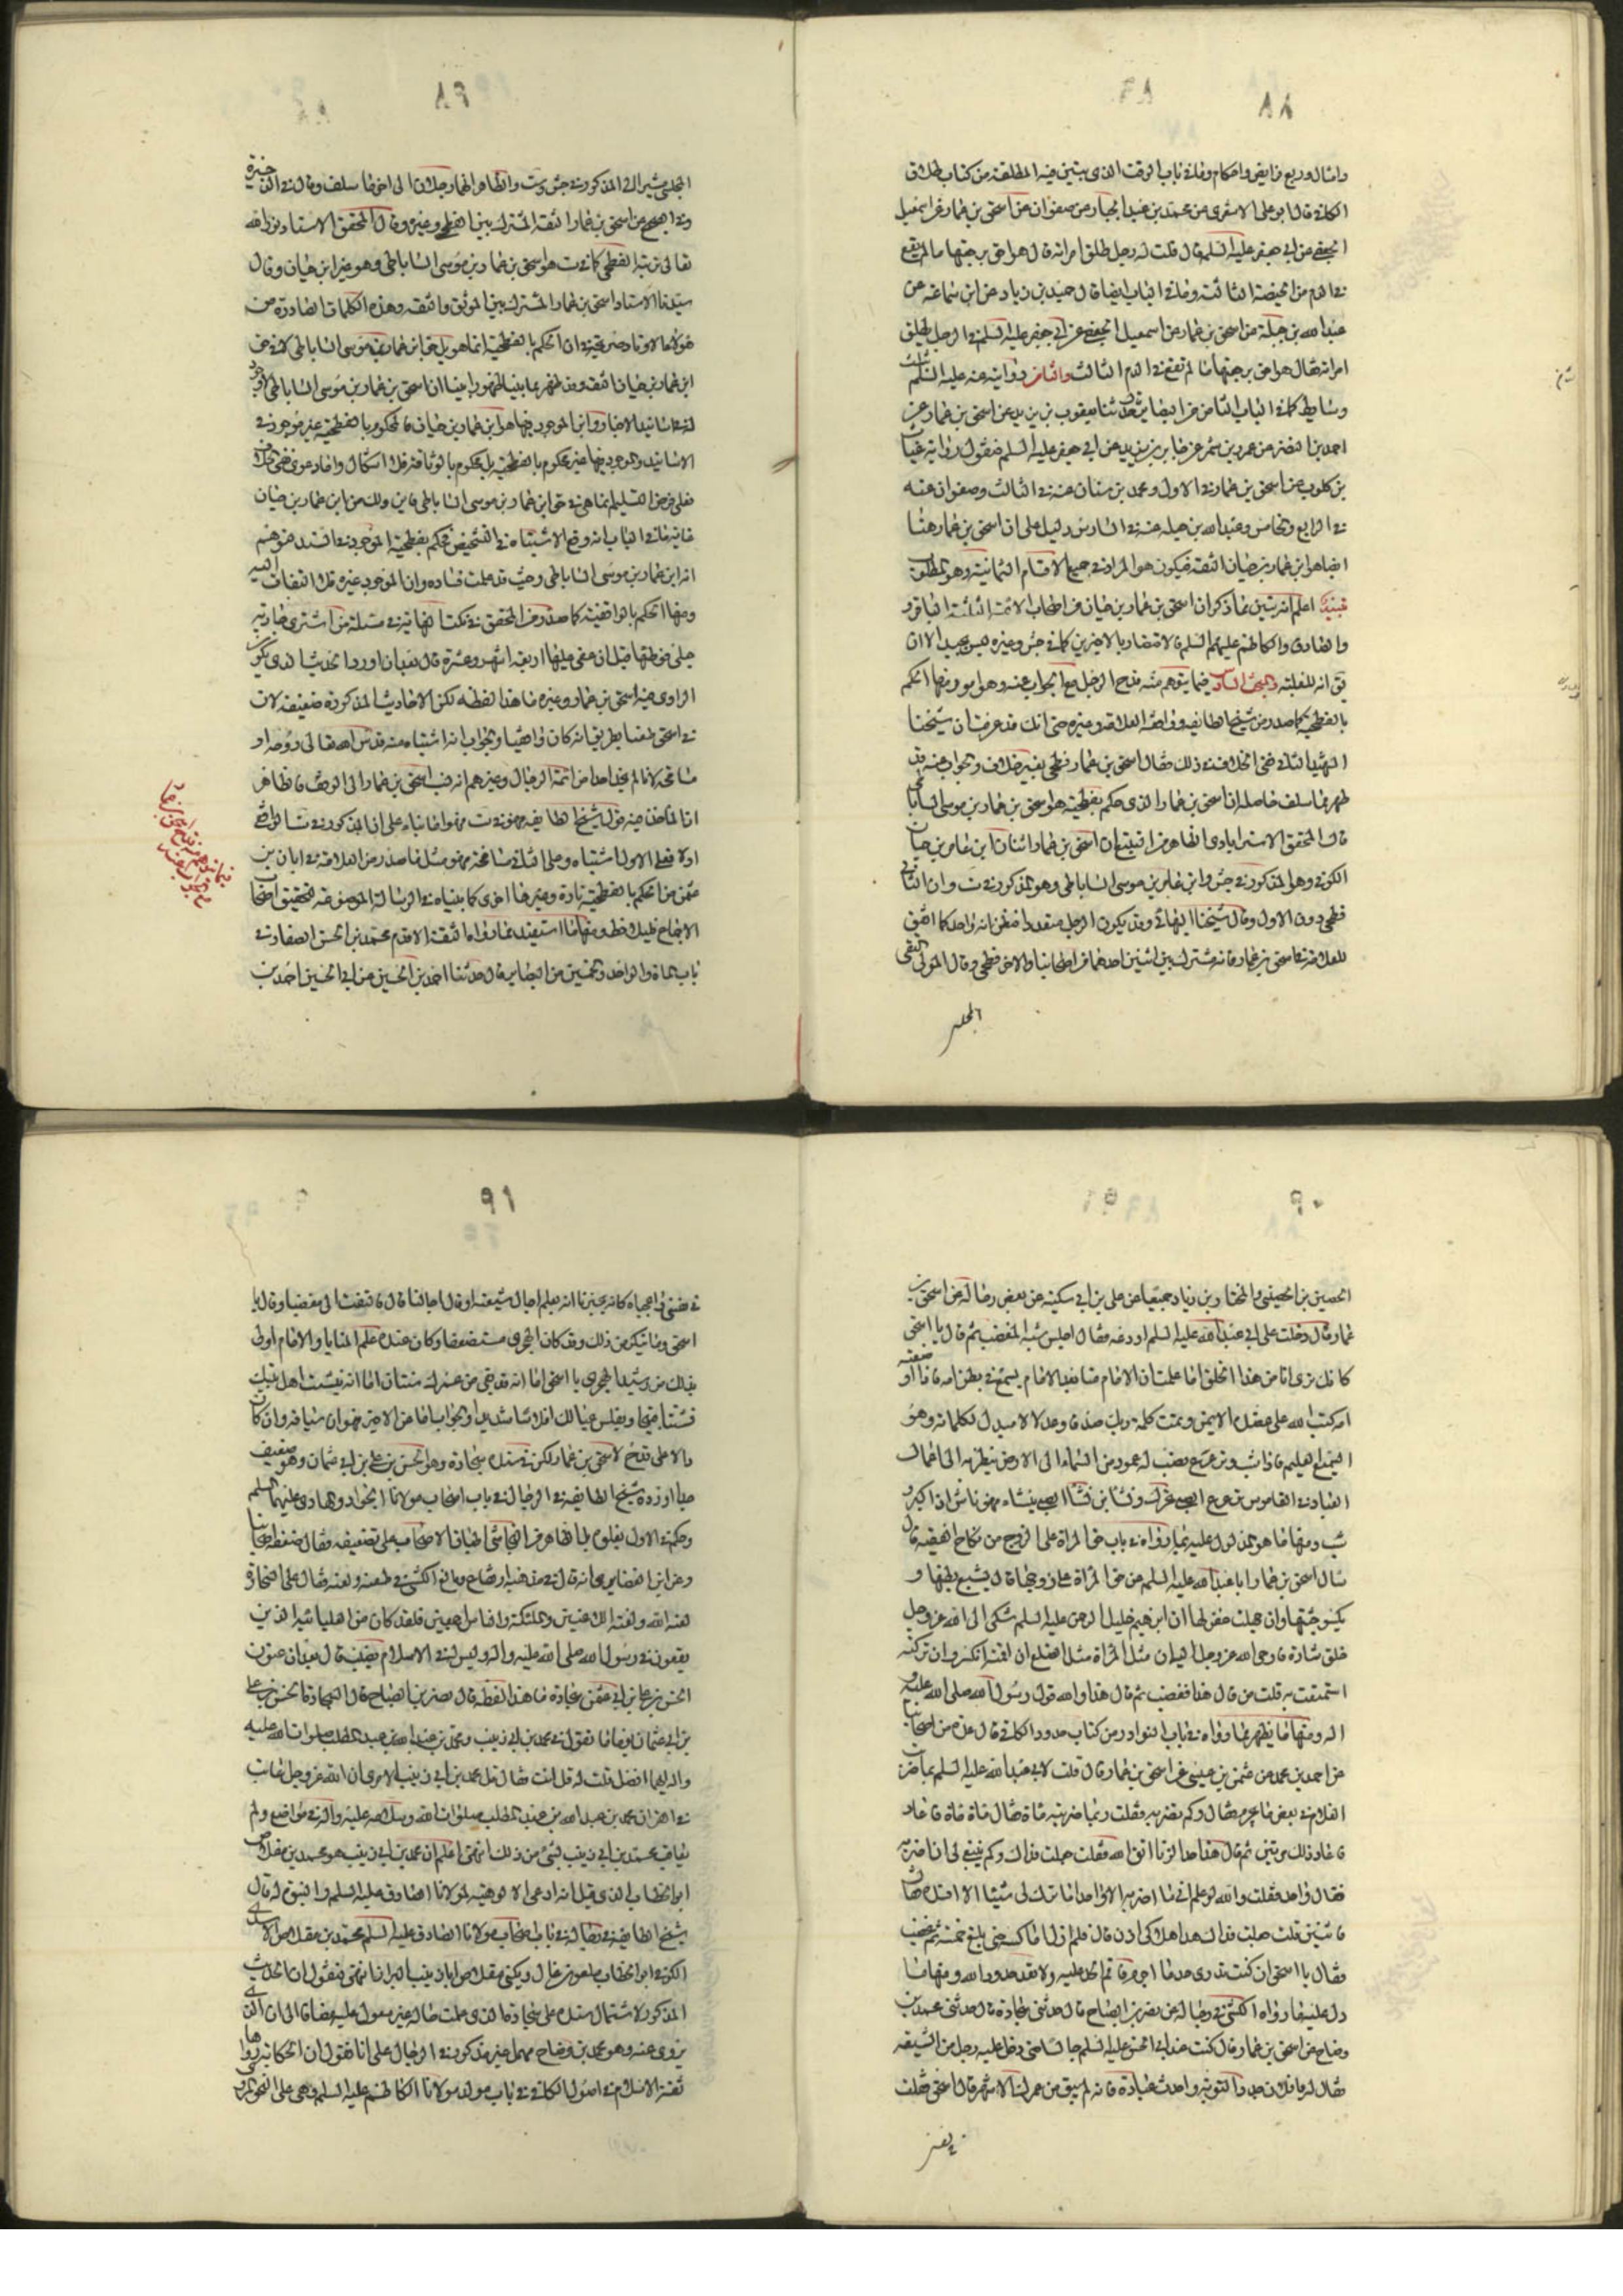 ٨٨
وامثال وربع فرايض واحكام وفى باب الوقت الذى يتبين فيه المطلقة من كتاب طلاق
الكافى قال ابو على الاشعرى عن محمد بن عبد الجبار عن صفوان عن اسحق بن عمار عن اسمعيل
الجعفى عن ابى جعفر عليه السلم قال قلت له رجل طلق امراته قال هو احق برجعتها ما لم يقع
فى الدم من الحيضة الثالثة وفى الباب ايضا قال حميد بن زياد عن ابن سماعة عن
عبد الله بن جبلة عن اسحق بن عمار عن اسمعيل الجعفى عن ابى جعفر عليه السلم فى الرجل يطلق
امراته فقال هو احق برجعتها ما لم تقع فى الدم الثالث والثامن رواية عنه عليه السلم
احمد بن النضر عن عمرو بن شمر عن جابر بن يزيد عن ابى جعفر عليه السلم فنقول رواية غياث
بن كلوب عن اسحق بن عمار فى الاول ومحمد بن سنان عنه فى الثالث وصفوان عنه
فى الرابع والخامس وعبد الله بن جبلة عنه فى السادس دليل على ان اسحق بن عمار هنا
ايضا هو ابن عمار بن حيان الثقة فيكون هو المراد فى جميع الاقسام الثمانية وهو المطلوب
تنبيه اعلم انه تبين مما ذكر ان اسحق بن عمار بن حيان من اصحاب الائمة الثلثة الباقر و
والصادق والكاظم عليهم السلم فالاقتصار بالاخيرين كما فى جش وغيره ليس بجيد الا ان
يق انه للغلبة والمبحث السادس فيما يتوهم منه قدح الرجل مع الجواب عنه وهو امور منها الحكم
بالفطحية كما صدر من شيخ الطايفة ووافقه العلامة وغيره حتى انك قد عرفت ان شيخنا
الشهيد الثانى نفى الخلاف فى ذلك فقال اسحق بن عمار فطحى بغير خلاف والجواب عنه قد
ظهر مما سلف حاصله ان اسحق بن عمار الذى حكم بفطحيته هو اسحق بن عمار بن موسى الساباطى
قال المحقق الاسترابادى الظاهر من التتبع ان اسحق بن عمار اثنان ابن عمار بن حيان
الكوفى وهو المذكور فى جش وابن عمار بن موسى الساباطى وهو المذكور فى ست وان الثانى
فطحى دون الاول وقال شيخنا البهائى وقد يكون الرجل متعددا فيظن انه واحد كما اتفق
للعلامة فى اسحق بن عمار فانه مشترك بين اثنين احدهما من اصحابنا والاخر فطحى وقال المولى التقى
المجلسى
المجلسى مشيرا الى المذكور فى جش وست والظاهر انهما رجلان الى اخر ما سلف وقال فى الذخيرة
وفى الصحيح عن اسحق بن عمار الثقة المشترك بين الفطحى وغيره وقال المحقق الاستاد نور الله
تعالى تربته الفطحى كما فى ست هو اسحق بن عمار بن موسى الساباطى وهو غير ابن حيان وقال
سيدنا الاستاد اسحق بن عمار المشترك بين الموثق والثقة وهذه الكلمات الصادرة من
هؤلاء الاوتاد صريحة فى ان الحكم بالفطحية انما هو بالنسبة الى ابن عمار بن موسى الساباطى لا فى حق
ابن عمار بن حيان الثقة وقد ظهر مما بينا
لنا فى اسانيد الاخبار وانما الموجود فيها هو ابن عمار بن حيان فالمحكوم بالفطحية غير موجود فى
الاسانيد والموجود فيها غير محكوم بالفطحية بل محكوم بالوثاقة فلا اشكال
فعلى فرض التسليم انما هى فى حق ابن عمار بن موسى الساباطى فاين ذلك من ابن عمار بن حيان
غاية ما فى الباب انه وقع الاشتباه فى التشخيص فحكم بفطحية الموجود فى السند فتوهم
انه ابن عمار بن موسى الساباطى وحيث قد علمت فساده وان الموجود غيره فلا التفات اليه
ومنها الحكم بالواقفية كما صدر من المحقق فى نكت النهاية فى مسئلة من اشترى جارية
حبلى فوطئها قبل ان مضى عليها اربعة اشهر وعشرة قال بعد ان اورد الحديث الذى يكون
الراوى فيه اسحق بن عمار وغيره ما هذا لفظه لكن الاحاديث المذكورة ضعيفة لان
فى اسحق طعنا بطريق انه كان واقفيا والجواب انه اشتباه منه قدس الله تعالى روحه او
مسامحة لانا لم نجد احدا من ائمة الرجال وغيرهم انه نسب اسحق بن عمار الى الوقف فالظاهر
ان الماخذ فيه قول شيخ الطايفة
اولا فعلى الاول اشتباه وعلى الثانى مسامحة فهو مثل ما صدر من العلامة فى ابان بن
عثمن من الحكم بالفطحية تارة وغيرها اخرى كما بيناه فى الرسالة الموضوعة لتحقيق اصحاب
الاجماع فليلاحظ ومنها ما استفيد مما رواه الثقة الاقدم محمد بن الحسن الصفار فى
باب المائة والواحد والخمسين من البصاير قال حدثنا احمد بن الحسين عن ابى الحسين احمد بن
٩٠
الحصين بن الحصينى والمختار بن زياد جميعا عن على بن ابى سكينة عن بعض رجاله عن اسحق بن
عمار قال دخلت على ابى عبد الله عليه السلم اودعه فقال اجلس شبه المغضب ثم قال يا اسحق
كانك ترى انا من هذا الخلق اما علمت ان الامام منا بعد الامام يسمع فى بطن امه فاذا وضعته
امه كتب الله على عضده الايمن وتمت كلمة ربك صدقا وعدلا لا مبدل لكلماته وهو
السميع العليم فاذا شب وترعرع نصب له عمود من السماء الى الارض ينظر به الى اعمال
العباد فى القاموس ترعرع الصبى تحرك ونشا
شب ومنها ما هو المدلول عليه بما رواه فى باب حق المراة على الزوج من نكاح الفقيه قال
سال اسحق بن عمار ابا عبد الله عليه السلم عن حق المراة على زوجها قال يشبع بطنها و
يكسو جثتها وان جهلت غفر لها ان ابرهيم خليل الرحمن عليه السلم شكى الى الله عز وجل
خلق سارة فاوحى الله عز وجل اليه ان مثل المراة مثل الضلع ان اقمته انكسر وان تركته
استمتعت به قلت من قال هذا فغضب ثم قال هذا والله قول رسول الله صلى الله عليه و
اله ومنها ما يظهر مما رواه فى باب النوادر من كتاب حدود الكافى قال عدة من اصحابنا
عن احمد بن محمد عن عثمن بن عيسى عن اسحق بن عمار قال قلت لابى عبد الله عليه السلم ربما ضربت
الغلام فى بعض ما يجرم فقال وكم تضربه فقلت ربما ضربته مائة فقال مائة مائة فاعاد
فاعاد ذلك مرتين ثم قال هذا حد الزنا اتق الله فقلت جعلت فداك وكم ينبغى لى ان اضربه
فقال واحد فقلت والله لو علم انى لا اضربه الا واحدا ما ترك لى شيئا الا افسده فقال
فاثنين قلت جعلت فداك هذا هلاكى اذن قال فلم ازل اماكسه حتى بلغ خمسة ثم غضب
فقال يا اسحق ان كنت تدرى حد ما اجرم فاقم الحد عليه ولا تعد حدود الله ومنها ما
دل عليه ما رواه الكشى فى رجاله عن نصر بن الصباح قال حدثنى سجادة قال حدثنى محمد بن
وضاح عن اسحق بن عمار قال كنت عند ابى الحسن عليه السلم جالسا حتى دخل عليه رجل من الشيعة
فقال له يا فلان جدد التوبة واحدث عبادة فانه لم يبق من عمرك الا شهر قال اسحق فقلت
فى نفسى
٩١
فى نفسى واعجباه كانه يخبرنا انه يعلم اجال شيعته او قال اجالنا قال فالتفت الى مغضبا وقال يا
اسحق وما تنكر من ذلك وقد كان الهجرى مستضعفا وكان عنده علم المنايا والامام اولى
بذلك من رشيد الهجرى يا اسحق اما انه قد بقى من عمرك سنتان اما انه يتشتت اهل بيتك
تشتتا قبيحا ويفلس عيالك افلاسا شديدا والجواب اما عن الاخير فهو ان سياقه وان كان
دالا على قدح لاسحق بن عمار لكن فى سنده سجادة وهو الحسن بن على بن ابى عثمان وهو ضعيف
جدا اورده شيخ الطايفة فى الرجال فى باب اصحاب مولانا الجواد والهادى عليهما السلم
وحكم فى الاول بغلوه بل الظاهر من النجاشى اطباق الاصحاب على تضعيفه فقال ضعفه اصحابنا
وعن ابن الغضايرى انه قال فى مذهبه ارتفاع وبالغ الكشى فى طعنه ولعنه فقال على السجادة
لعنة الله ولعنة اللاعنين والملئكة والناس اجمعين فلقد كان من العليائية الذين
يقعون فى رسول الله صلى الله عليه واله وليس له فى الاسلام نصيب قال بعد ان عنون
الحسن بن على بن ابى عثمن سجادة ما هذا لفظه قال نصر بن الصباح قال لى سجادة الحسن بن على
بن ابى عثمان يوما ما تقول فى محمد بن ابى زينب ومحمد بن عبد الله بن عبد المطلب صلوات الله عليه
واله ايهما افضل قلت له قل انت فقال بل محمد بن ابى زينب الا ترى ان الله عز وجل عاتب
فى القران محمد بن عبد الله بن عبد المطلب صلوات الله وسلامه عليه واله فى مواضع ولم
يعاتب محمد بن ابى زينب بشئ من ذلك انتهى اعلم ان محمد بن ابى زينب هو محمد بن مقلاص
ابو الخطاب الذى قيل انه ادعى الالوهية لمولانا الصادق عليه السلم والنبوة له قال
شيخ الطايفة فى رجاله فى باب اصحاب مولانا الصادق عليه السلم محمد بن مقلاص الاسدى
الكوفى ابو الخطاب ملعون غال ويكنى مقلاص ابا زينب البزاز انتهى فنقول ان الحديث
المذكور لاشتمال سنده على سجادة الذى علمت حاله غير معول عليه مضافا الى ان الذى
يروى عنه وهو محمد بن وضاح مهمل غير مذكور فى الرجال على انا نقول ان الحكاية رواها
ثقة الاسلام فى اصول الكافى فى باب مولد مولانا الكاظم عليه السلم وهى على النحو المروى